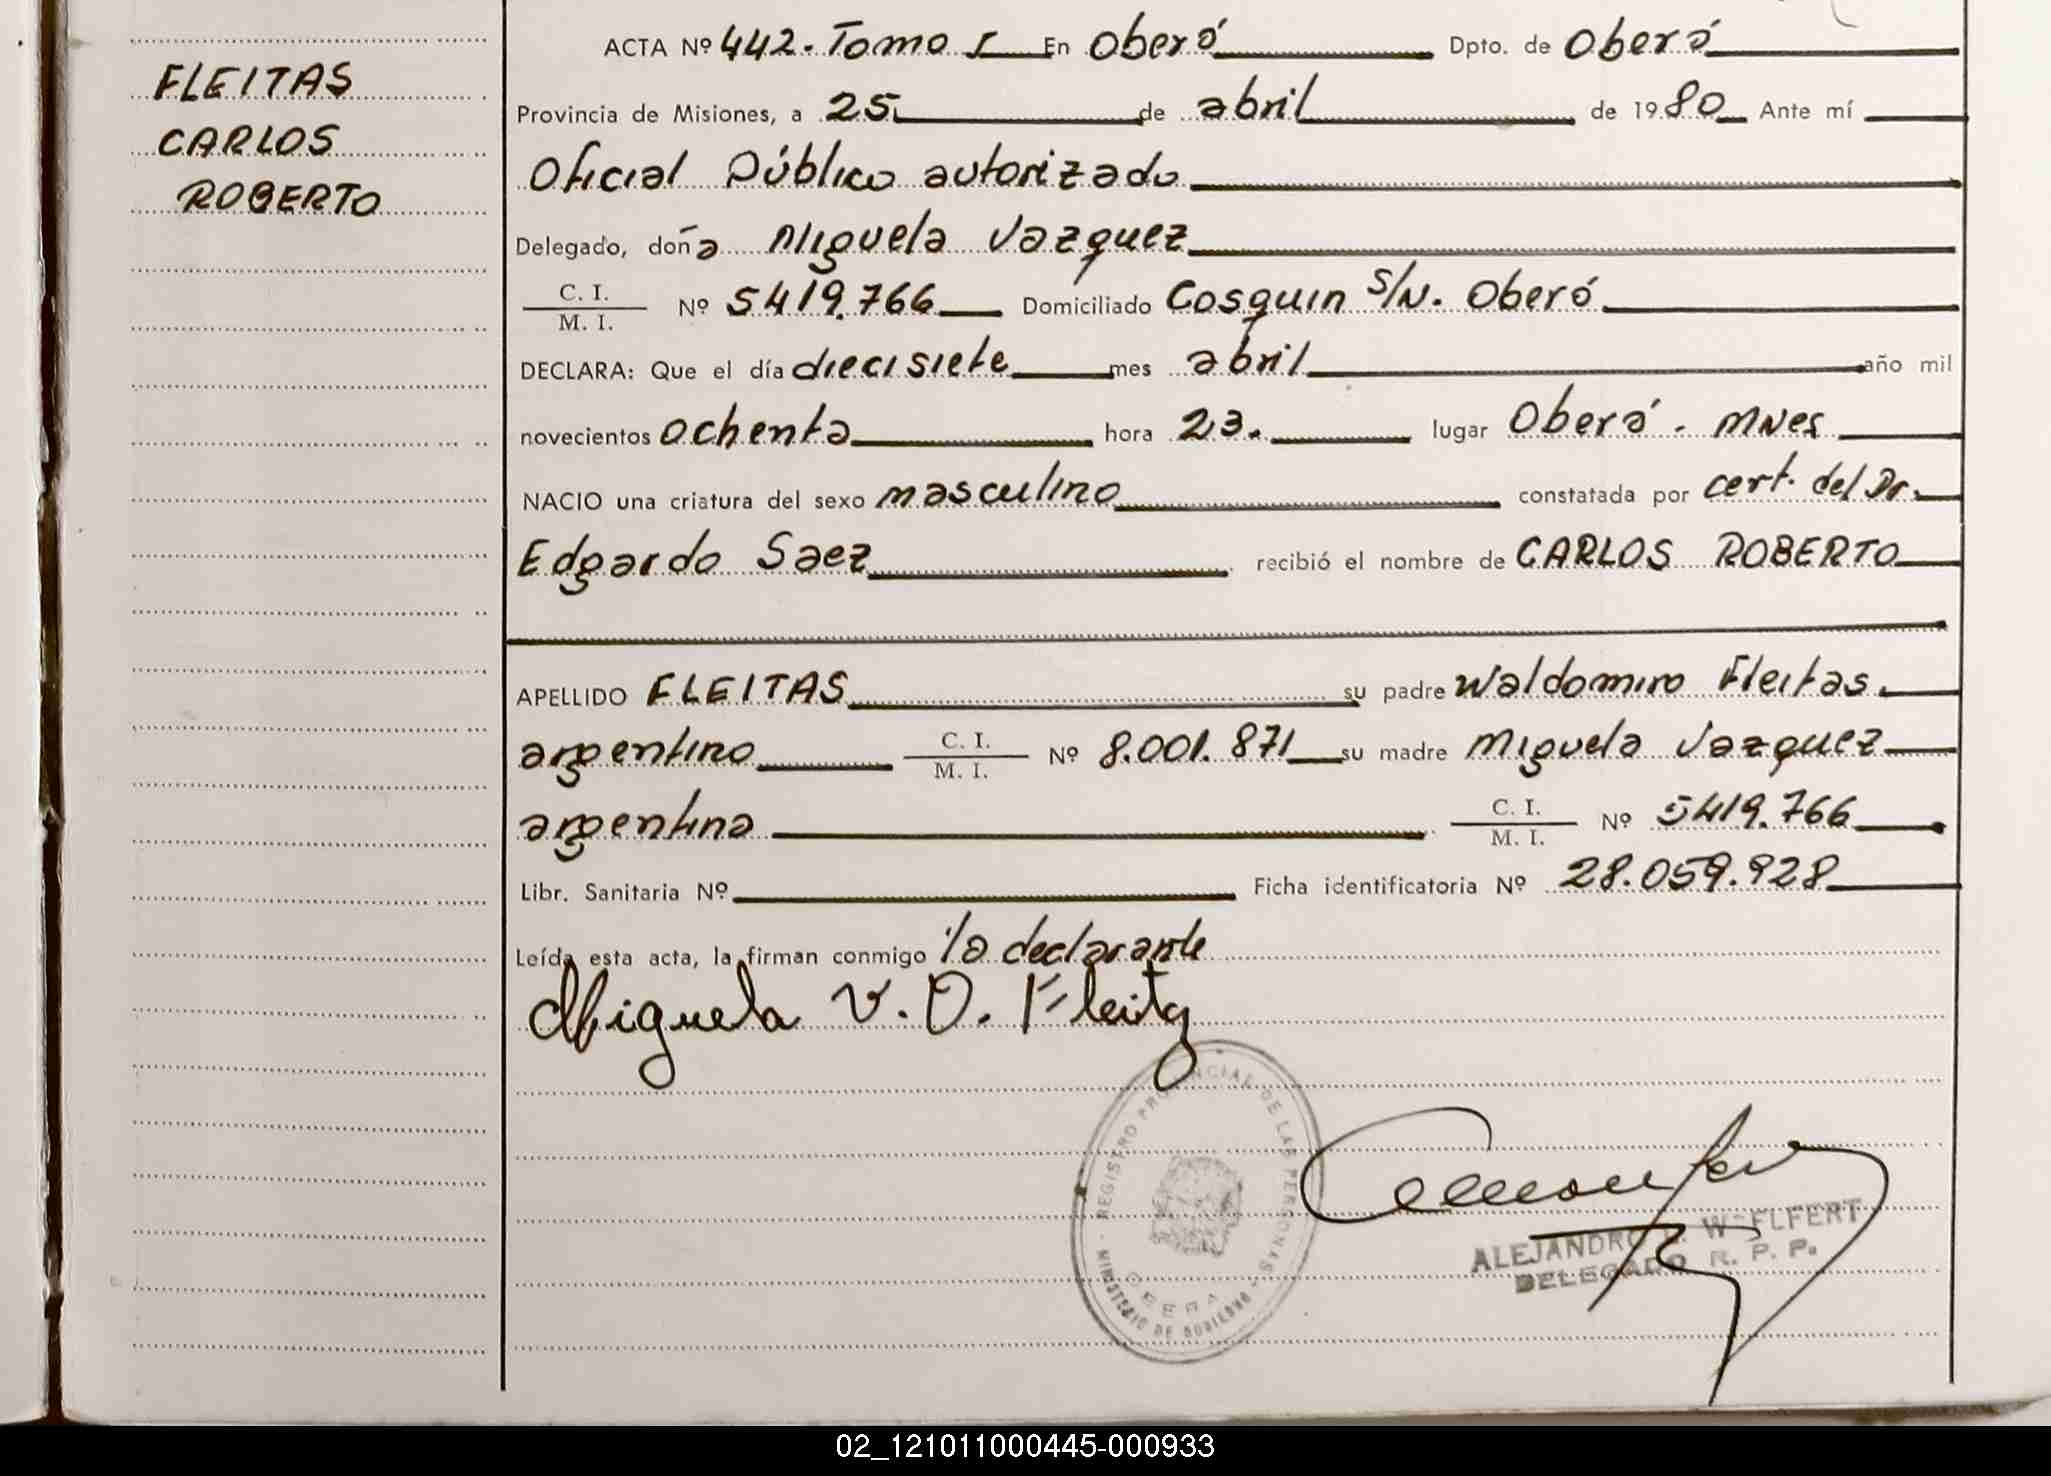 FLEITAS
CARLOS
ROBERTO
ACTA Nº 442. Tomo I En Oberá Dpto. de Oberá
Provincia de Misiones, a 25 de abril de 1980 Ante mí
Oficial Público autorizado
Delegado, doña Miguela Vazquez
C. I.
M. I. Nº 5419.766 Domiciliado Cosquin S/N. Oberá
DECLARA: Que el día diecisiete mes abril año mil
novecientos ochenta hora 23. lugar Oberá - Mnes
NACIO una criatura del sexo masculino constatada por cert. del Dr.
Edgardo Saez recibió el nombre de CARLOS ROBERTO
APELLIDO FLEITAS su padre Waldomiro Fleitas
argentino C. I.
M. I. Nº 8.001.871 su madre Miguela Vazquez
argentina C. I.
M. I. Nº 5419.766
Libr. Sanitaria Nº Ficha identificatoria Nº 28.059.928
Leída esta acta, la firman conmigo la declarante
Miguela V. D. Fleita
REGISTRO PROVINCIAL DE LAS PERSONAS
OBERA
MINISTERIO DE GOBIERNO
ALEJANDRO
DELEGADO R. P. P.
02_121011000445-000933